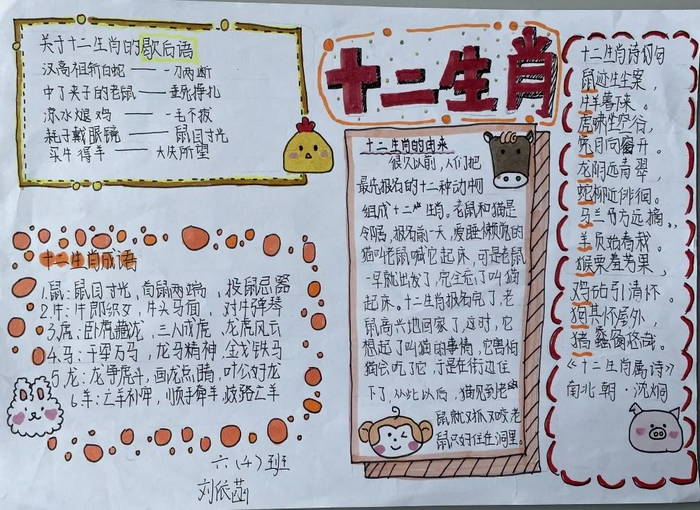 关于十二生肖的歇后语
汉高祖斩白蛇——一刀两断
中了夹子的老鼠——垂死挣扎
滚水煺鸡——一毛不拔
耗子戴眼镜——鼠目寸光
买牛得羊——大失所望
十二生肖
十二生肖的由来
很久以前,人们把
最先报名的十二种动物
组成十二生肖。老鼠和猫是
邻居,报名前一天,爱睡懒觉的
猫叫老鼠喊它起床,可是老鼠
一早就出发了,完全忘了叫猫
起床。十二生肖报名完了,老
鼠高兴地回家了,这时,它
想起了叫猫的事情,它害怕
猫会吃了它,于是在街边住
下了,从此以后,猫见到老
鼠就又抓又咬老
鼠只好住在洞里。
十二生肖诗词句
鼠迹生尘案,
牛羊暮下来。
虎啸坐空谷,
兔月向窗开。
龙阴远青翠,
蛇柳近徘徊。
马兰方远摘,
羊负始春栽。
猴栗羞芳果,
鸡砧引清怀。
狗其怀屋外,
猪蠡窗悠哉。
《十二生肖属诗》
南北朝·沈炯
十二生肖成语
1.鼠:鼠目寸光,首鼠两端,投鼠忌器
2.牛:牛郎织女,牛头马面,对牛弹琴
3.虎:卧虎藏龙,三人成虎,龙虎风云
4.马:千军万马,龙马精神,金戈铁马
5.龙:龙争虎斗,画龙点睛,叶公好龙
6.羊:亡羊补牢,顺手牵羊,歧路亡羊
六(4)班